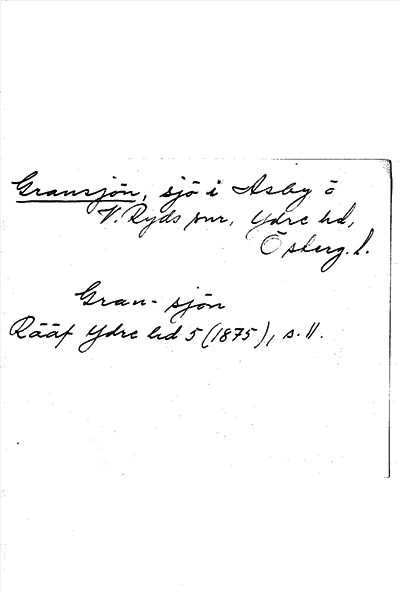 Gransjön, sjö i Asby o
V. Ryds snr, Ydre hd,
Österg. l.
Gran- sjön
Rääf Ydre hd 5 (1875), s. 11.